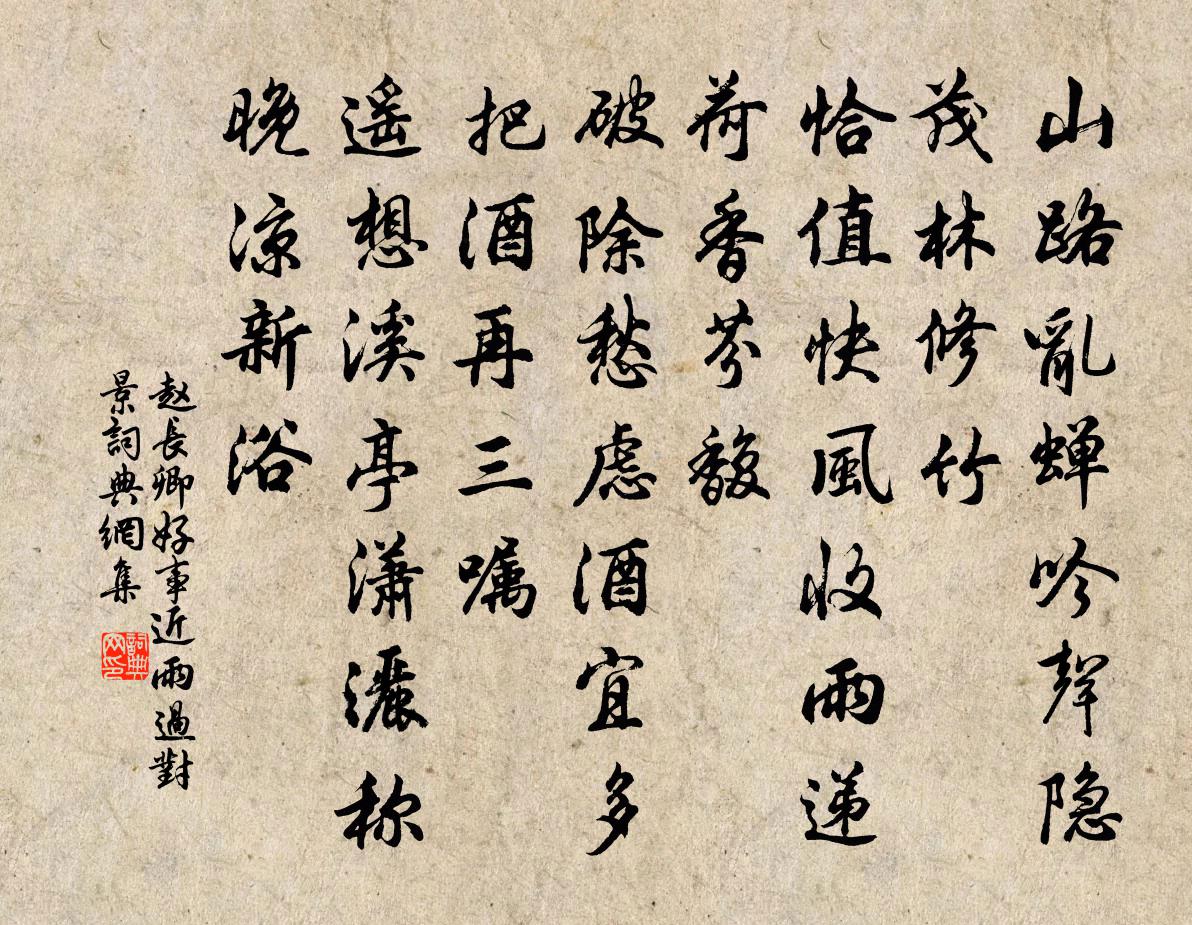 山路亂蝉吟聲隐
茂林修竹
恰值快風收雨递
荷香芬馥
破除愁慮酒宜多
把酒再三嘱
遥想溪亭潇灑称
晚凉新浴
赵長卿好事近雨過對
景詞典網集
詞典网印